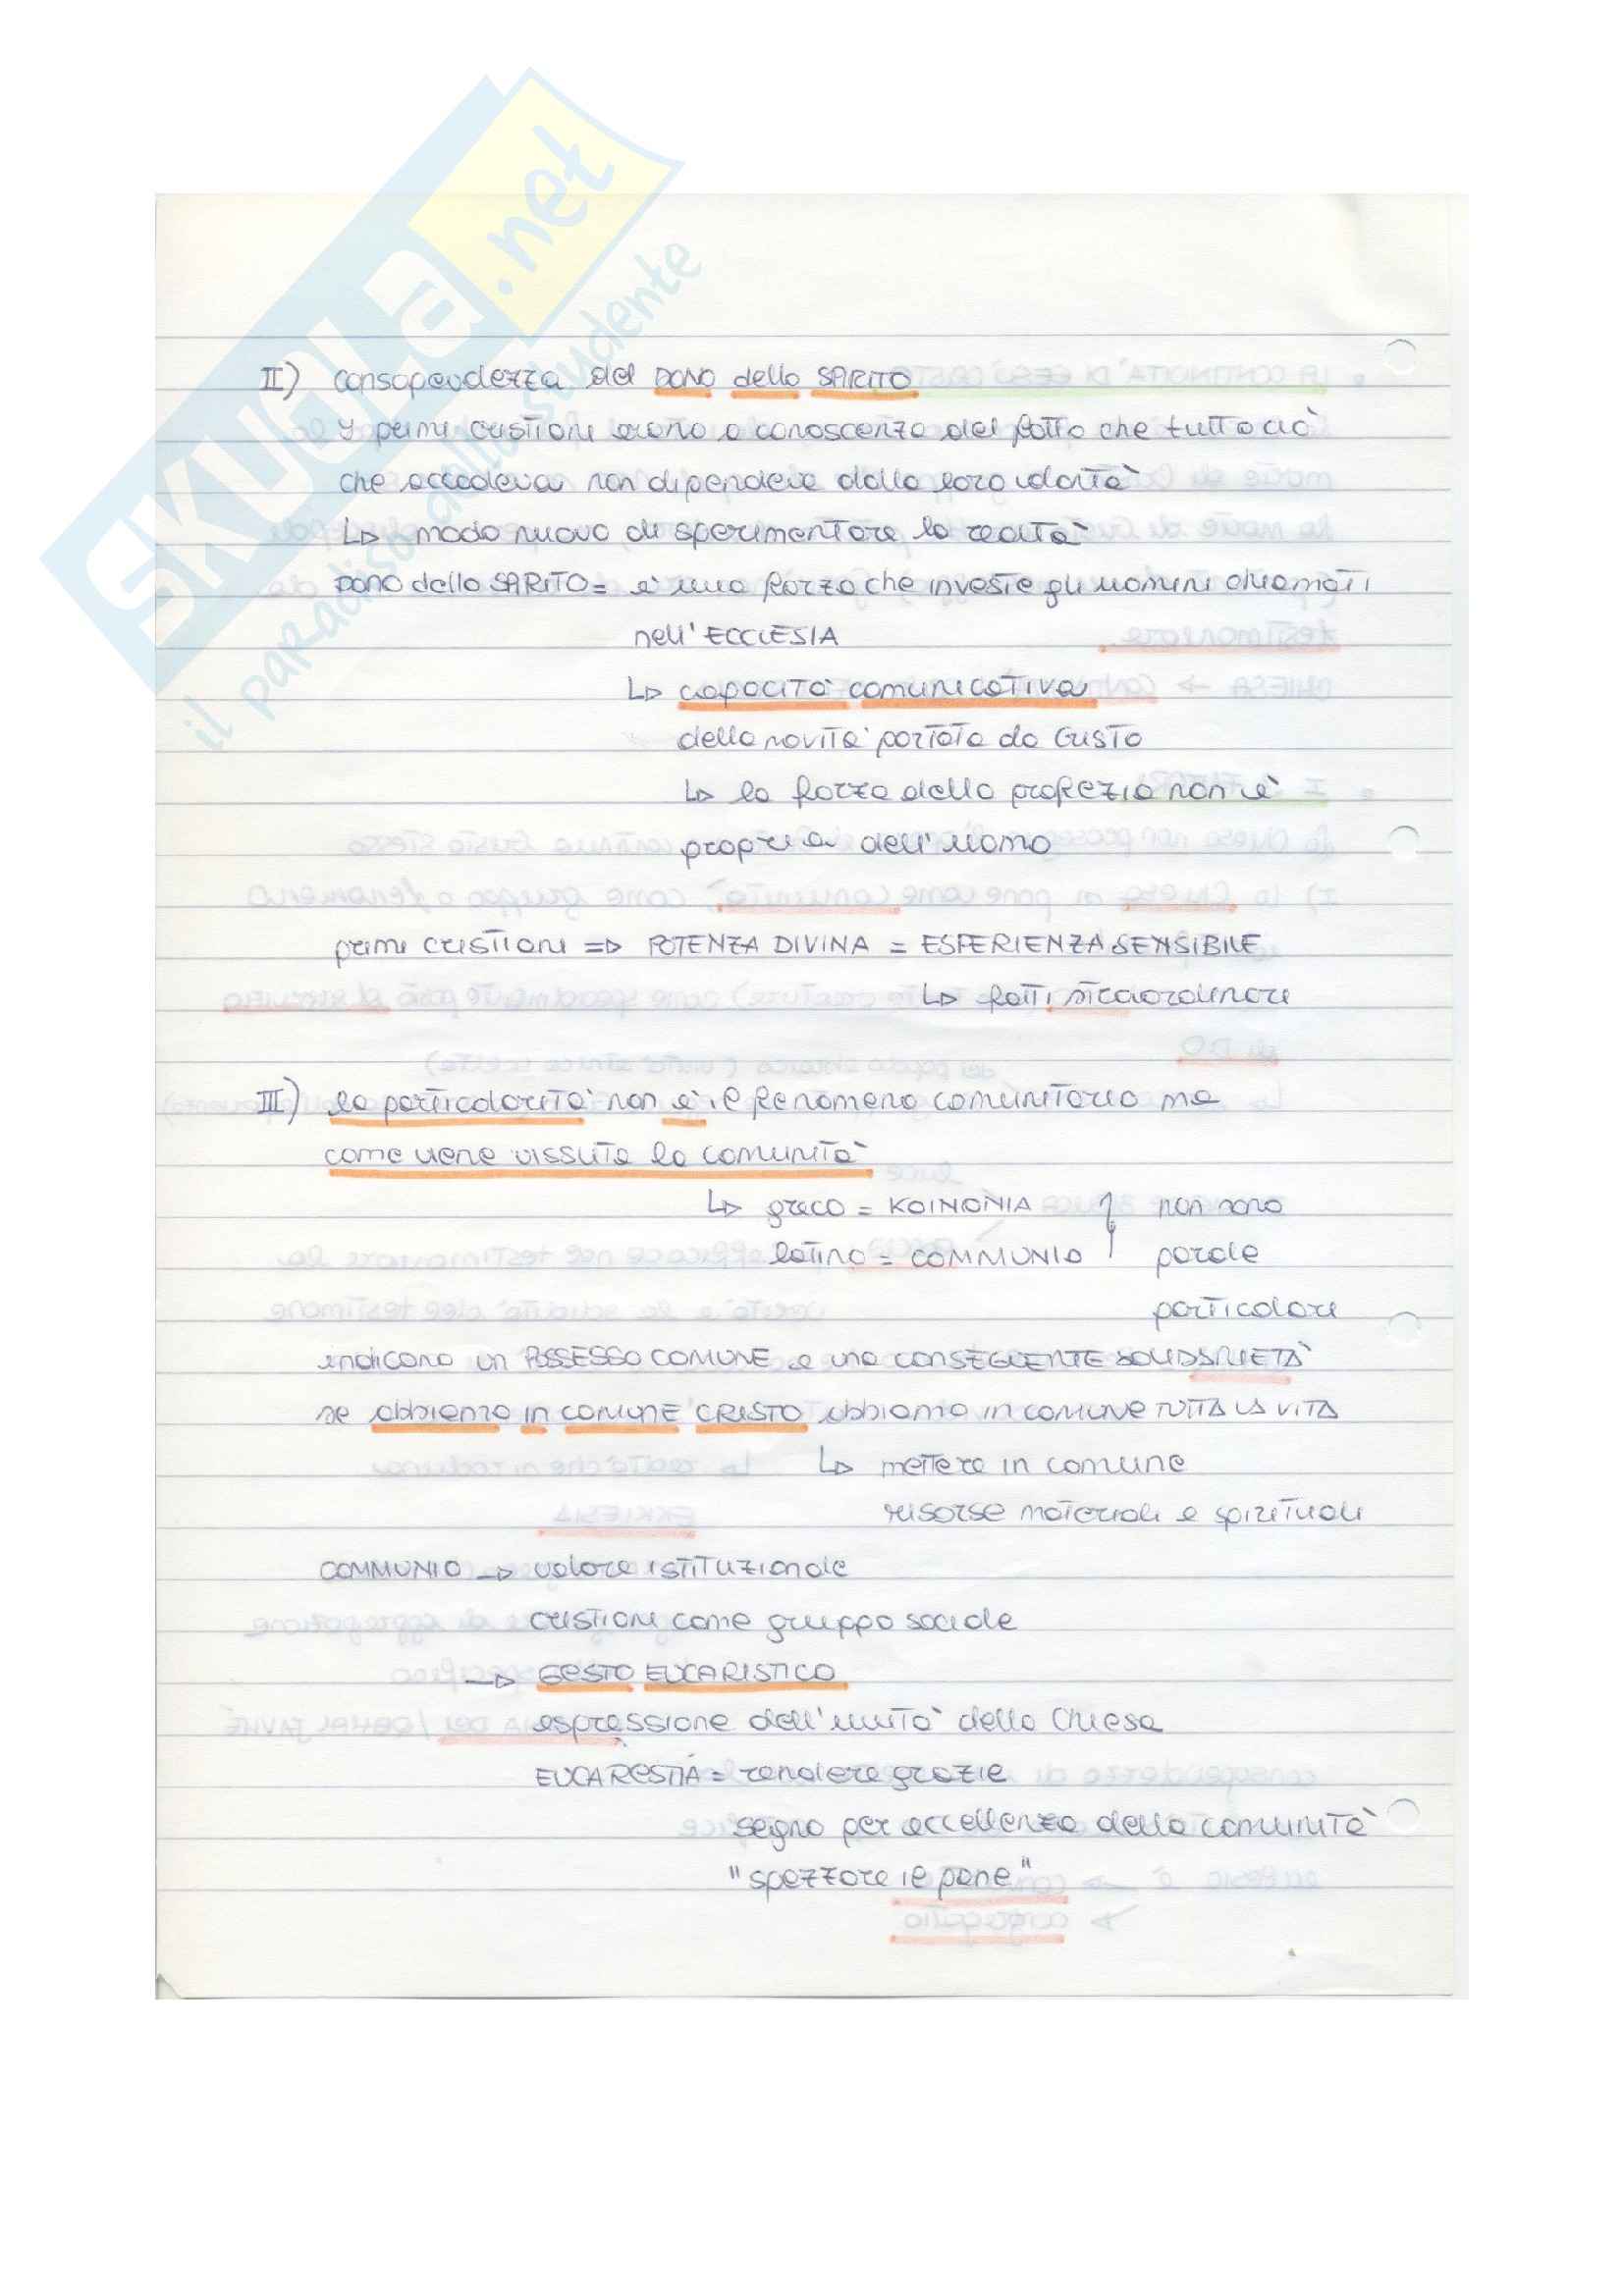 SKUOLA.net
il paradiso dello studente
II) consapevolezza del DONO dello SPIRITO
I primi cristiani erano a conoscenza del fatto che tutto ciò
che accadeva non dipendeva dalla loro volontà
↳ modo nuovo di sperimentare la realtà
DONO dello SPIRITO = è una forza che investe gli uomini chiamati
nell'ECCLESIA
↳ capacità comunicativa
della novità portata da Cristo
↳ la forza della profezia non è
propria dell'uomo
primi cristiani => POTENZA DIVINA = ESPERIENZA SENSIBILE
↳ fatti straordinari
III) la particolarità non è il fenomeno comunitario ma
come viene vissuta la comunità
↳ greco = KOINONIA ↑ non sono
latino = COMMUNIO | parole
particolari
indicano un POSSESSO COMUNE e una CONSEGUENTE SOLIDARIETÀ
se abbiamo in COMUNE CRISTO abbiamo in COMUNE TUTTA LA VITA
↳ mettere in comune
risorse materiali e spirituali
COMMUNIO → valore ISTITUZIONALE
cristiani come gruppo sociale
→ GESTO EUCARISTICO
espressione dell'unità della Chiesa
EUCARESTIA = rendere grazie
segno per eccellenza della comunità
"spezzare il pane"